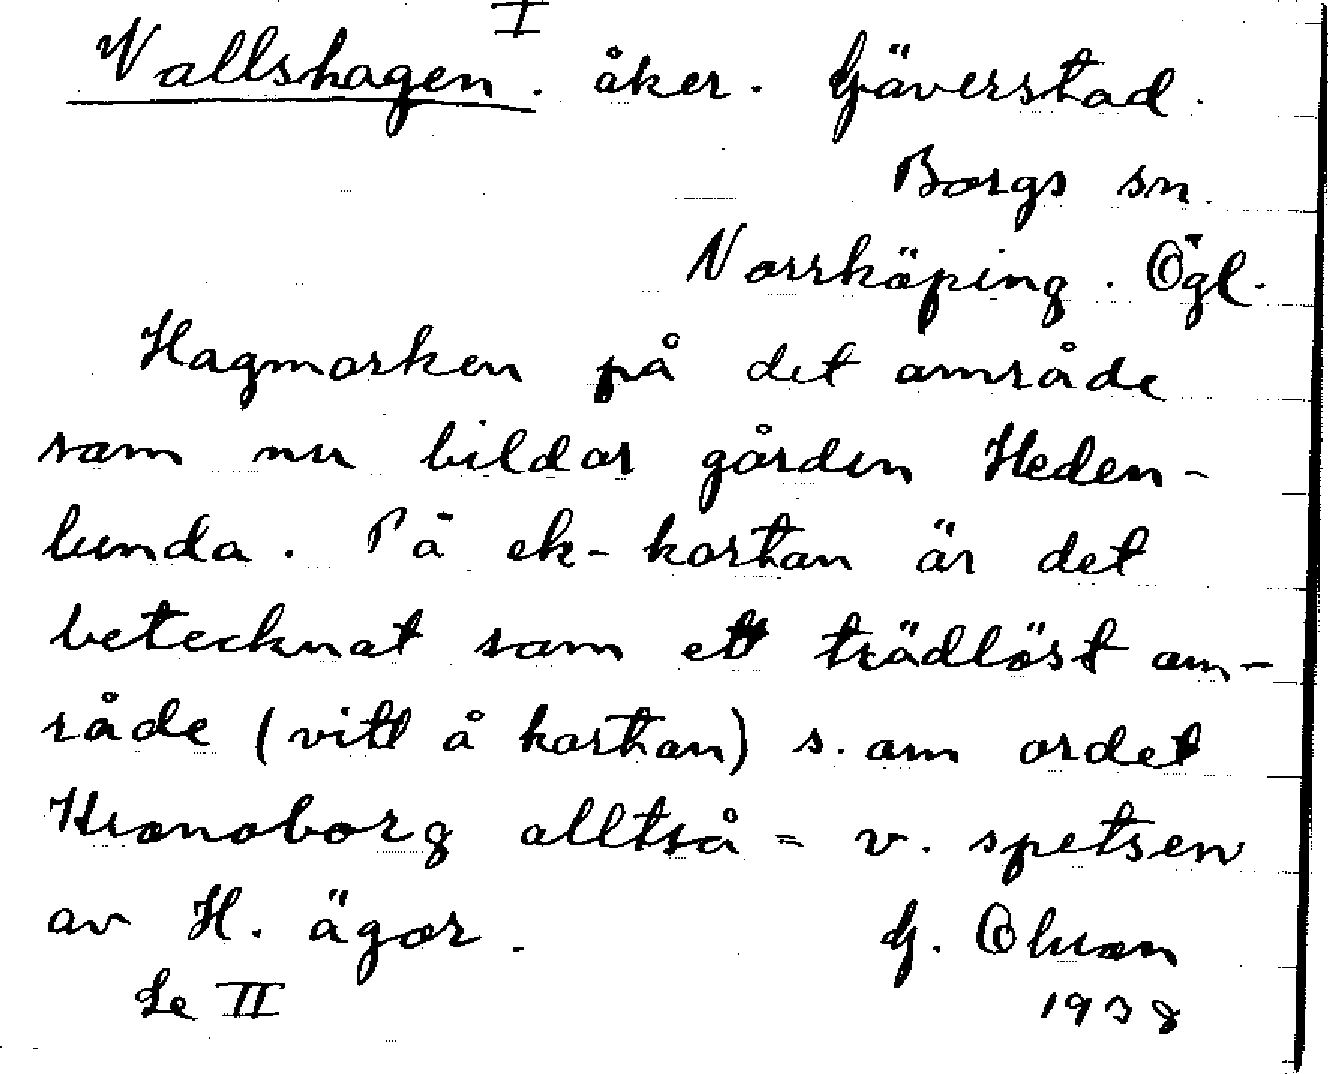 I
Vallshagen. åker. Gäverstad.
Borgs sn.
Norrköping. Ögl.
Hagmarken på det område
som nu bildar gården Heden-
lunda. På ek-kartan är det
betecknat som ett trädlöst om-
råde (vitt å kartan) s. om ordet
Kronoborg alltså = v. spetsen
av H. ägor.
G. Olsson
Se II
1938